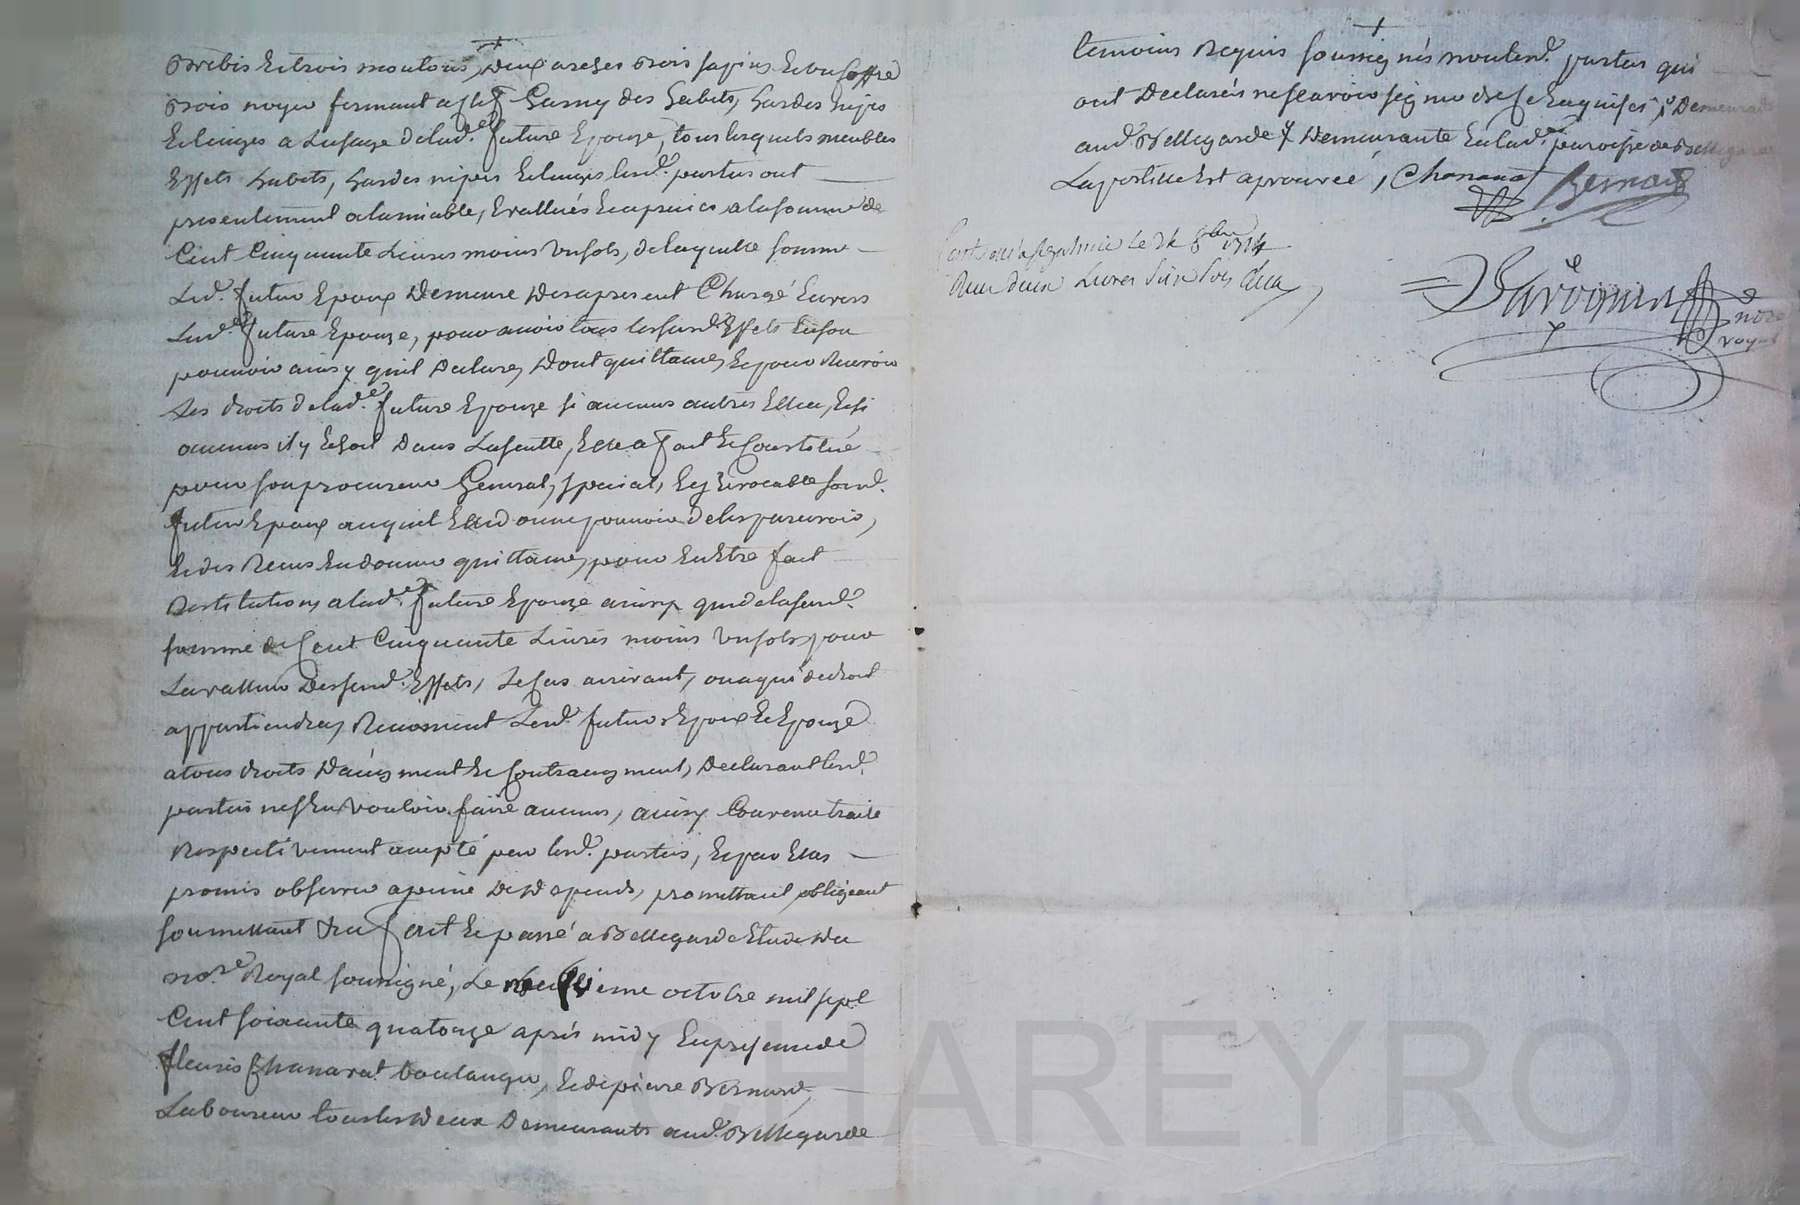 Brebis et trois moutons, deux arches bois sapin et un coffre
bois noyer fermant a clef Garny des habits, hardes nipes
et linges a l'usage de lad.e future Epouze, tous lesquels meubles
Effets habits, hardes nipes et linges lesd. parties ont
presentement a lamiable, Evallués et apreciés a la somme de
Cent Cinquante Livres moins un sols, de laquelle somme
Led. futur Epoux Demeure des apresent Chargé Envers
Lad.e future Epouze, pour avoir tous les susd. Effets en son
pouvoir ainsy quil Declare, Dont quittance, et pour Recevoir
Les droits de lad.e future Epouze si aucuns autres Elle a, et si
aucuns il y echoit Dans La suitte, Elle a fait et Constitué
pour son procureur General, special, et irrevocable sond.
futur Epoux auquel Elle donne pouvoir de les percevoir,
et des Recus en donner quittance, pour en Etre fait
Restitution a lad.e future Epouze ainsy que de la susd.
somme de Cent Cinquante Livres moins un sols pour
La valleur Desd. Effets, Le Cas arrivant, ou a qui de droit
appartiendra, Renoncent Lesd. futurs Epoux et Epouze
a tous droits D'augment et Contraugment, Declarant lesd.
parties n'en vouloir faire aucuns, ainsy Convenu traité
Respectivement accepté par lesd. parties, et par Elles
promis observer a peine de Depends, promettant obligeant
soumettant &ca fait et passé a Bellegarde Etude du
no.re Royal soussigné, Le ieme octobre mil sept
Cent soixante quatorze après midy En presence de
fleuris Chanavat boulanger, et de pierre Bernard,
Laboureur tous les deux Demeurants aud. Bellegarde
temoins Requis soussignés non lesd. parties qui
ont Declarés ne scavoir signer de ce Enquises
aud. Bellegarde Demeurante En lad.e paroisse de Bellegarde
La postille Est aprouvée, Chanavat Bernard
Le 24 8bre 1774
Livres Six Sols
no.re
royal
CHAREYRON